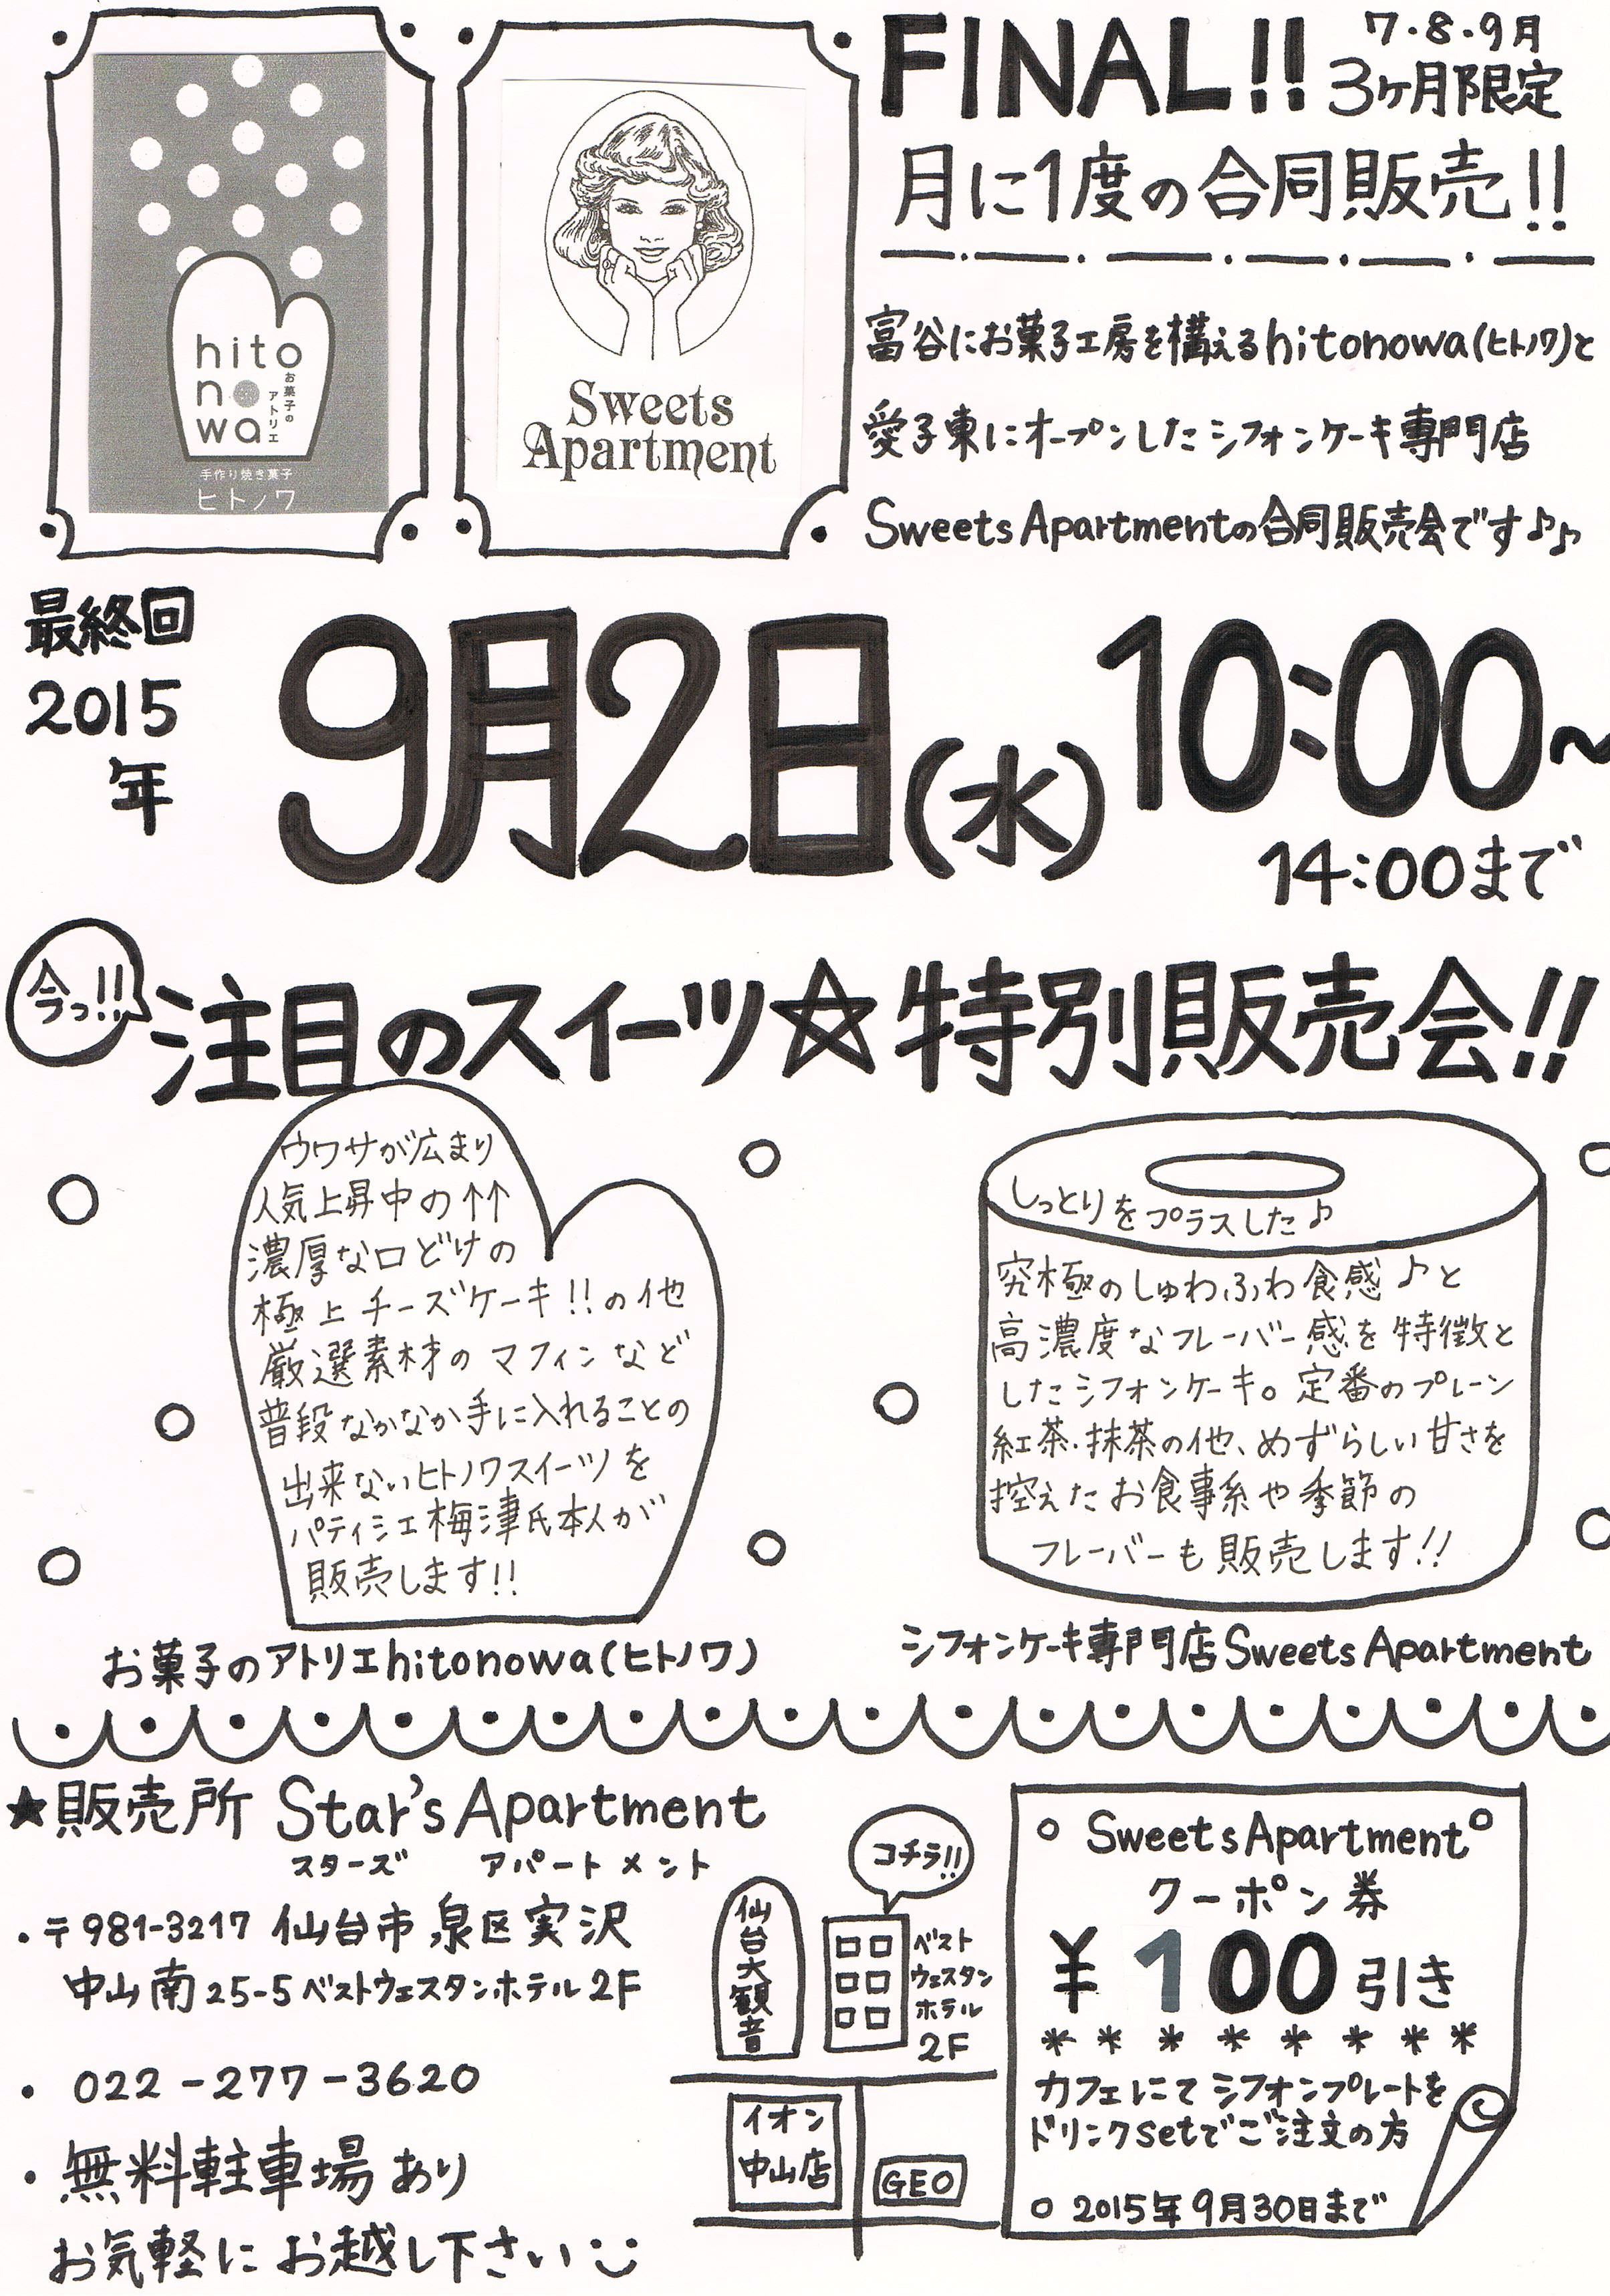 hito
no
wa
お菓子の
アトリエ
手作り焼き菓子
ヒトノワ
Sweets
Apartment
FINAL!!
7・8・9月
3ヶ月限定
月に1度の合同販売!!
富谷にお菓子工房を構えるhitonowa(ヒトノワ)と
愛子東にオープンしたシフォンケーキ専門店
Sweets Apartmentの合同販売会です♪♪
最終回
2015
年
9月2日(水)10:00~
14:00まで
今っ!!
注目のスイーツ☆特別販売会!!
ウワサが広まり
人気上昇中の↑↑
濃厚な口どけの
極上チーズケーキ!!の他
厳選素材のマフィンなど
普段なかなか手に入れることの
出来ないヒトノワスイーツを
パティシエ梅津氏本人が
販売します!!
お菓子のアトリエhitonowa(ヒトノワ)
しっとりをプラスした♪
究極のしゅわふわ食感♪と
高濃度なフレーバー感を特徴と
したシフォンケーキ。定番のプレーン
紅茶・抹茶の他、めずらしい甘さを
控えたお食事系や季節の
フレーバーも販売します!!
シフォンケーキ専門店Sweets Apartment
★販売所 Star's Apartment
スターズ アパートメント
・〒981-3217 仙台市泉区実沢
中山南25-5ベストウェスタンホテル2F
・022-277-3620
・無料駐車場あり
お気軽にお越し下さい
コチラ!!
仙台大観音
ベスト
ウェスタン
ホテル
2F
イオン
中山店
GEO
Sweets Apartment
クーポン券
¥100引き
＊＊＊＊＊＊＊＊
カフェにてシフォンプレートを
ドリンクsetでご注文の方
○2015年9月30日まで